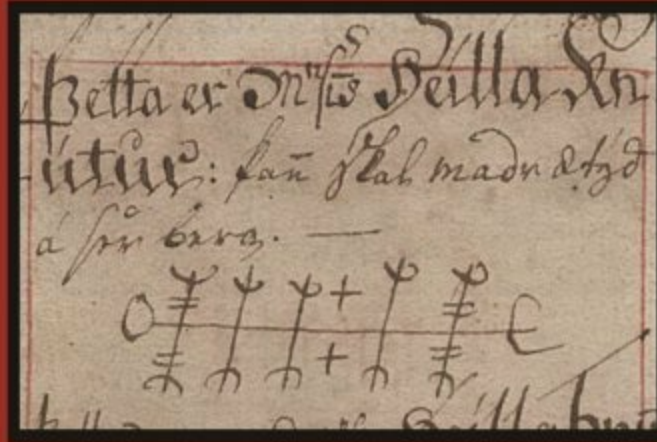 Þetta er Heilla Kn
útur: þann skal madr ætyd
á sier bera.